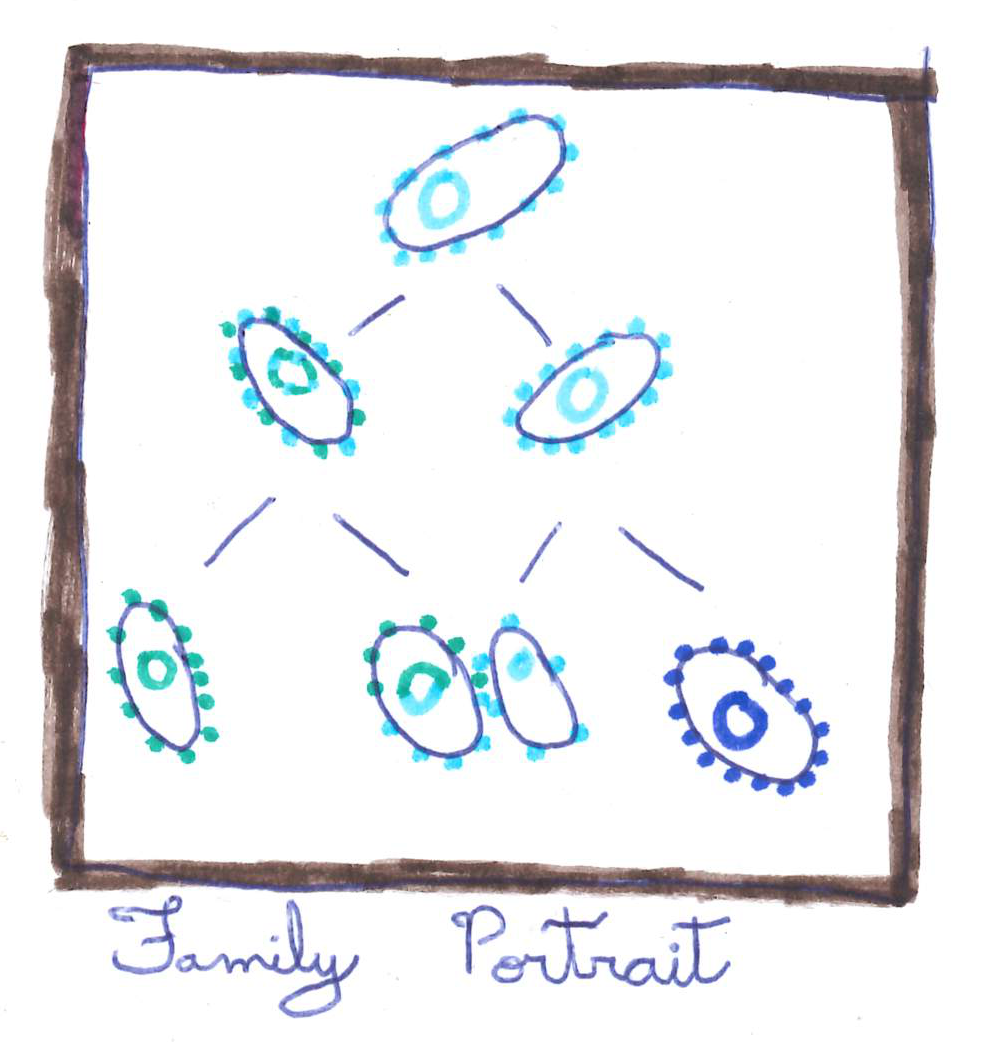 Family Portrait